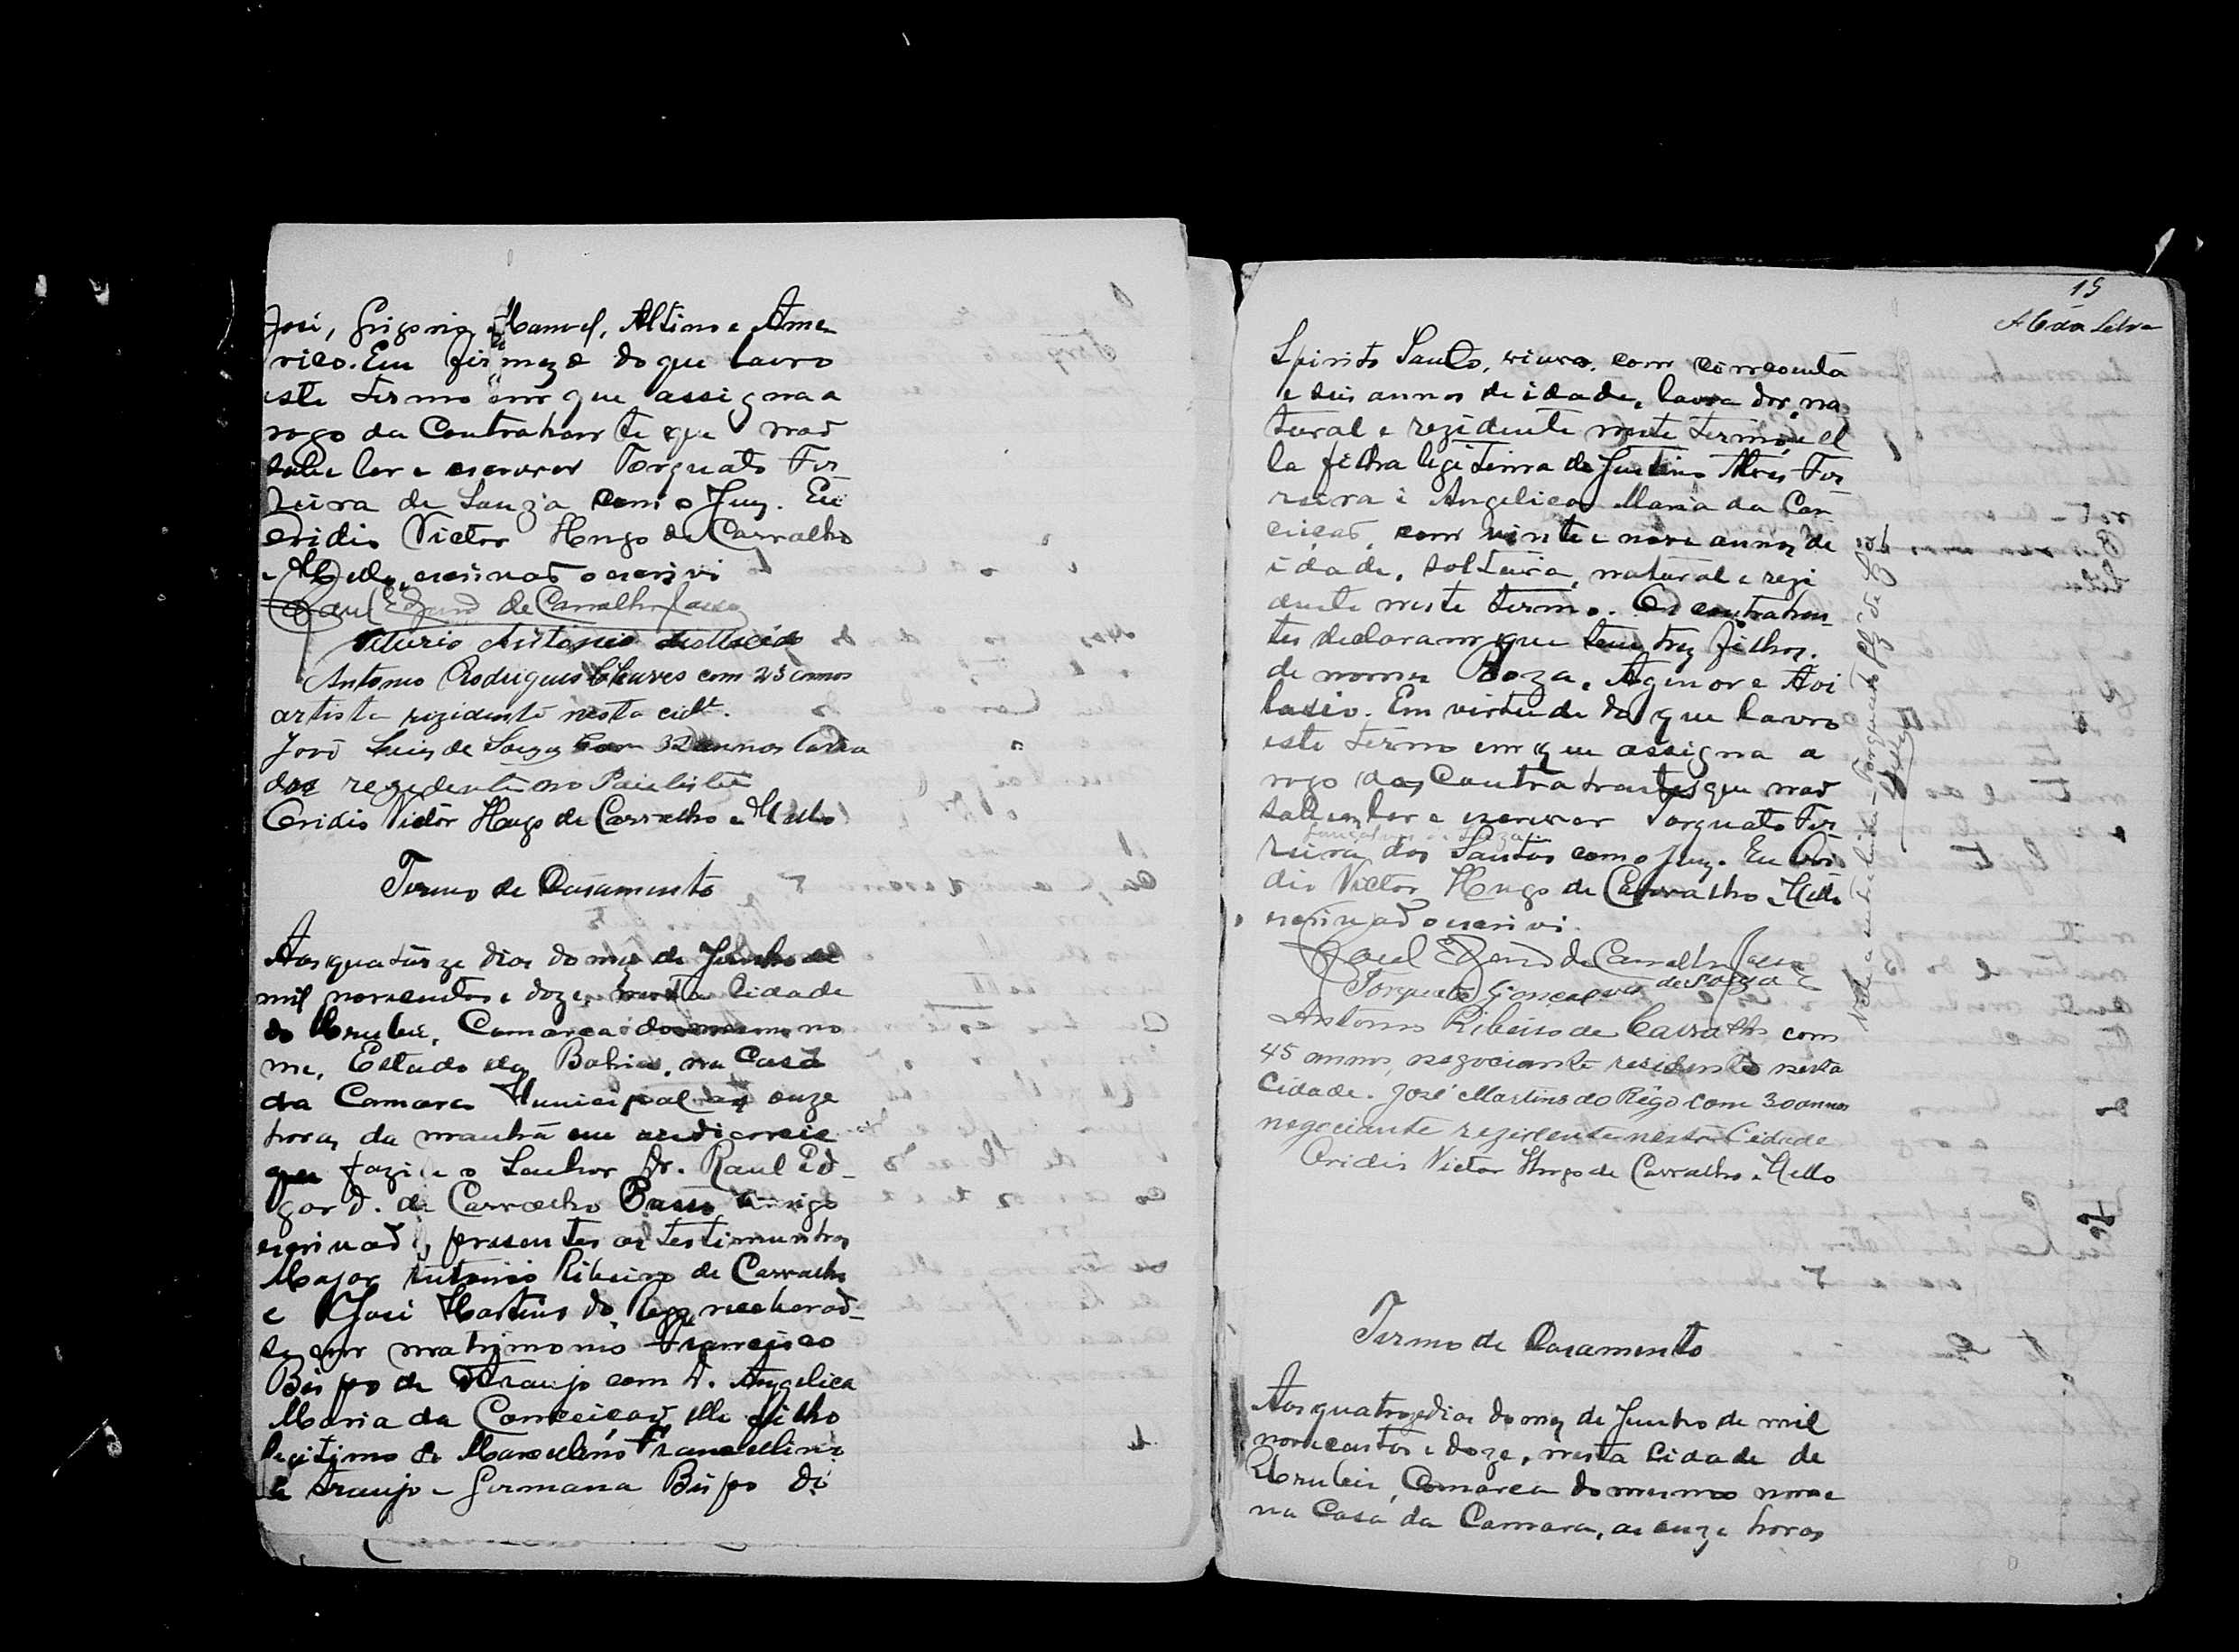 José, Grigorio, Manoel, Altino e Ame
rico. Em firmeza do que lavro
este termo em que assigna a
rogo da Contrahente que nao
sabe ler e escrever Torquato Fer
reira de Souza com o Juiz. Eu
Oridio Victor Hugo de Carvalho
e Mello, escrivaõ o escrivi
Raul Edgard de Carvalho
Antonio
Antonio Rodrigues Chaves com 25 annos
artista rezidente nesta cidᵉ.
João Luiz de Souza com 32 annos lavra
dor rezidente no Paulista
Oridio Victor Hugo de Carvalho e Mello
Termo de Casamento
Aos quatorze dias do mez de Junho de
mil novecentos e doze, nesta Cidade
do Urubú, Comarca do mesmo no
me, Estado da Bahia, na Casa
da Camara Municipal as onze
horas da manhã em audiencia
que fazia o Senhor Dr. Raul Ed-
gard. de Carvalho comigo
escrivaõ, presentes as testimunhas
Major Antonio Ribeiro de Carvalho
e José Martins do Rego, receberaõ-
se em matrimonio Francisco
Bispo de Araujo com D. Angelica
Maria da Conceicaõ, elle filho
legitimo de Marculino Francellino
de Araujo e Germana Bispo do
19
Spirito Santo, viuvo. com cincoenta
e seis annos de idade, lavrador, na
tural e rezidente neste termo, e el
la filha legitima de Justino Alves Fer
reira e Angelica Maria da Con
ceicaõ, com vinte e nove annos de
idade, solteira, natural e rezi
dente neste termo. Os contrahen
tes declaram que tem trez filhos.
de nomes Roza, Agenor e Avi
lasio. Em virtude do que lavro
este termo em que assigna a
rogo dos Contratrantes que naõ
sabem ler e escrever Torquato Fer
Gonçalves de Souza
reira dos Santos com o Juiz. Eu Ori
dio Victor Hugo de Carvalho e Mello
escrivaõ o escrivi.
Raul Edgard de Carvalho
Torquato Gonçalves de Souza
Antonio Ribeiro de Carvalho com
45 annos, negociante residente nesta
Cidade. José Martins do Rêgo com 30 annos
negociante rezidente nesta Cidade
Oridio Victor Hugo de Carvalho e Mello
Termo de Casamento
Aos quatorze dias do mez de Junho de mil
novecentos e doze, nesta Cidade de
Urubú, Comarca do mesmo nome
na Casa da Camara, as onze horas